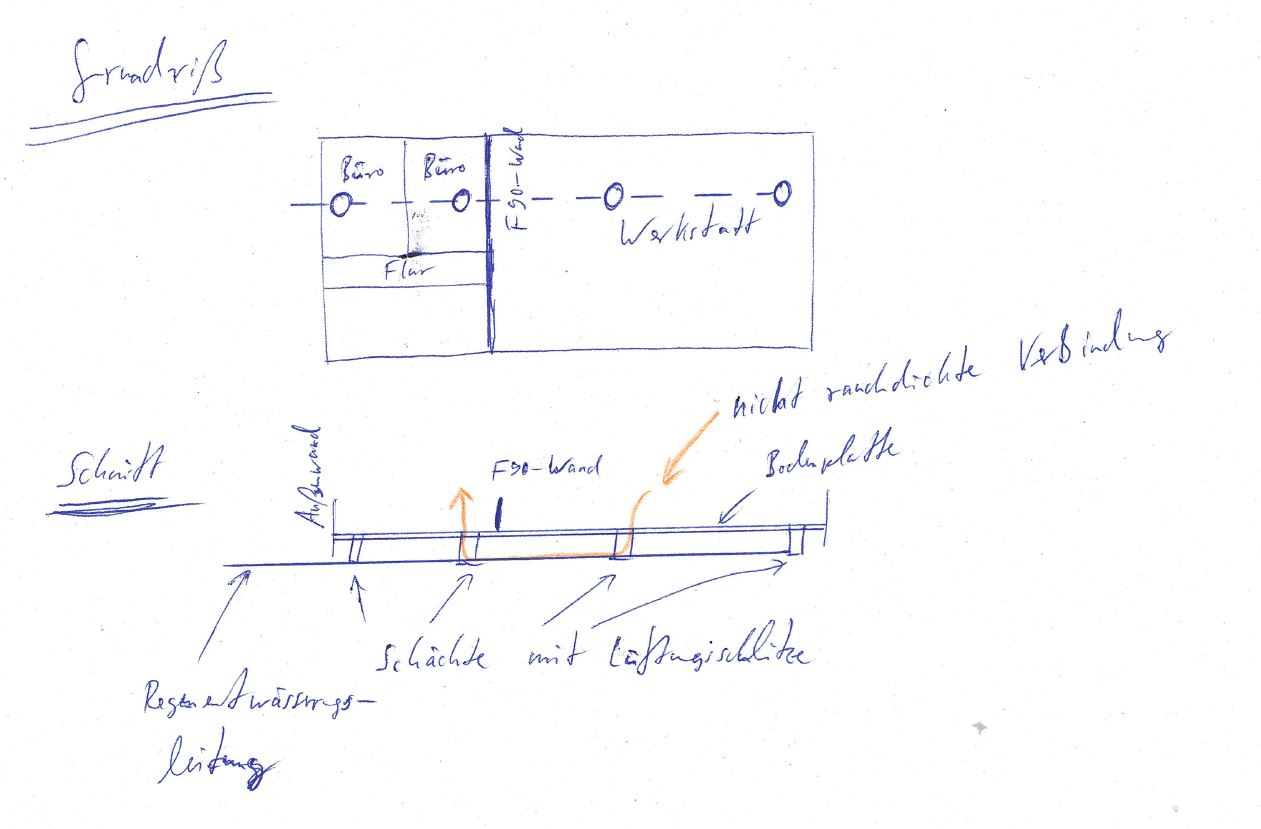 Grundriß
Büro
Büro
F90-Wand
Werkstatt
Flur
nicht rauchdichte Verbindung
Schnitt
Außenwand
F90-Wand
Bodenplatte
Schächte mit Lüftungsschlitze
Regenentwässerungs-
leitung